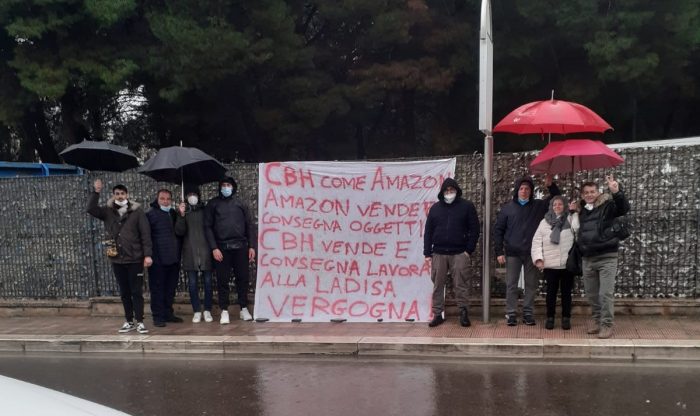 CBH COME AMAZON
AMAZON VENDE E
CONSEGNA OGGETTI
CBH VENDE E
CONSEGNA LAVORA
ALLA LADISA
VERGOGNA!